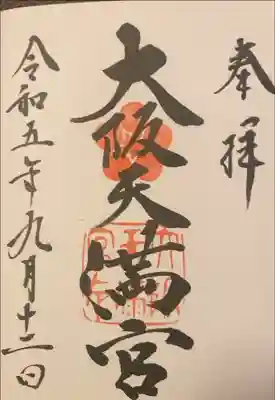 奉拝
大阪天満宮
令和五年九月十二日